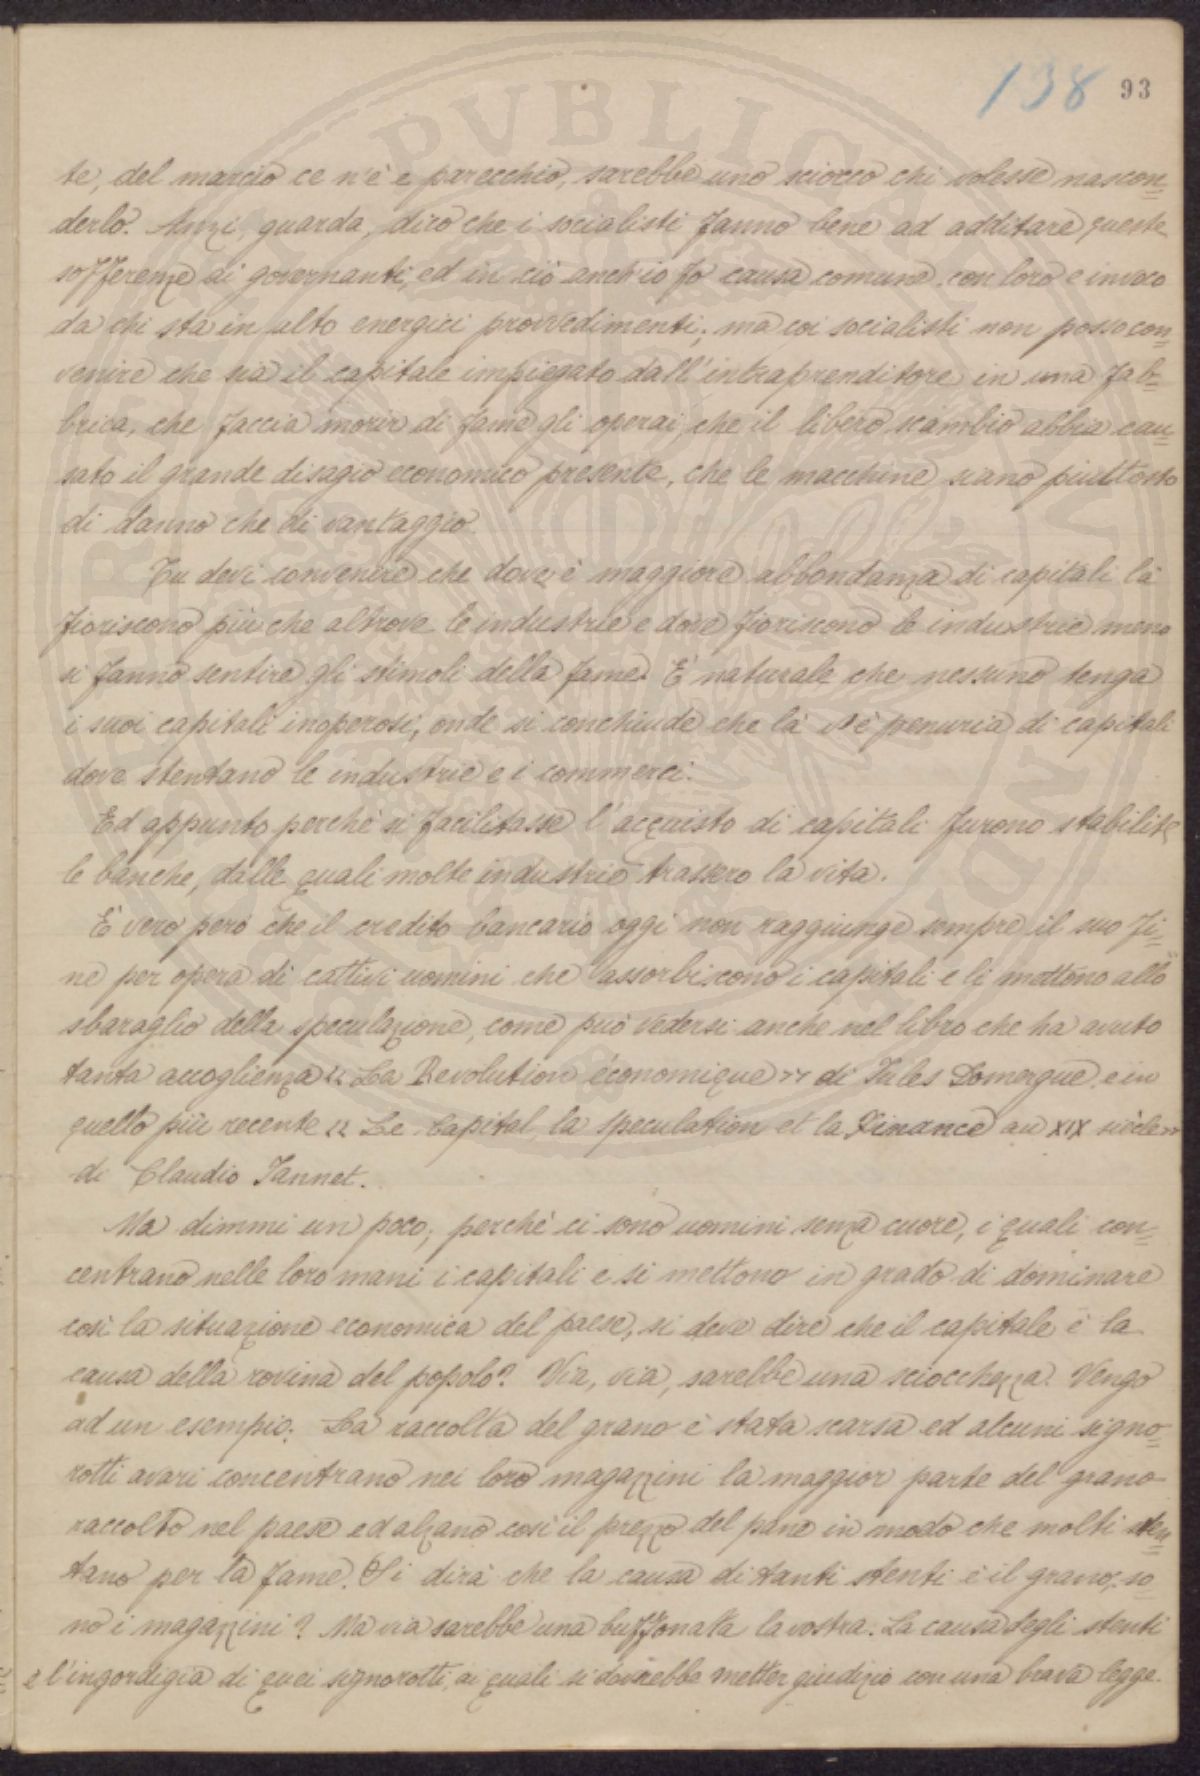 138 93
te, del marcio ce n'è e parecchio, sarebbe uno sciocco chi volesse nascon=
derlo. Anzi, guarda, dirò che i socialisti fanno bene ad additare queste
sofferenze ai governanti, ed in ciò anch'io fo causa comune con loro e invoco
da chi sta in alto energici provvedimenti; ma coi socialisti non posso con=
venire che sia il capitale impiegato dall'intraprenditore in una fab=
brica, che faccia morir di fame gli operai, che il libero scambio abbia cau=
sato il grande disagio economico presente, che le macchine siano piuttosto
di danno che di vantaggio.
Tu devi convenire che dove è maggiore abbondanza di capitali là
fioriscono più che altrove le industrie e dove fioriscono le industrie meno
si fanno sentire gli stimoli della fame. È naturale che nessuno tenga
i suoi capitali inoperosi, onde si conchiude che là v'è penuria di capitali
dove stentano le industrie e i commerci.
Ed appunto perchè si facilitasse l'acquisto di capitali furono stabilite
le banche, dalle quali molte industrie trassero la vita.
È vero però che il credito bancario oggi non raggiunge sempre il suo fi=
ne per opera di cattivi uomini che assorbiscono i capitali e li mettono allo
sbaraglio della speculazione, come può vedersi anche nel libro che ha avuto
tanta accoglienza "La Revolution économique" di Jules Domergue, e in
quello più recente "Le Capital, la speculation et la Finance au XIX siècle"
di Claudio Jannet.
Ma dimmi un poco; perchè ci sono uomini senza cuore, i quali con=
centrano nelle loro mani i capitali e si mettono in grado di dominare
così la situazione economica del paese, si deve dire che il capitale è la
causa della rovina del popolo? Via, via, sarebbe una sciocchezza. Vengo
ad un esempio: La raccolta del grano è stata scarsa ed alcuni signo=
rotti avari concentrano nei loro magazzini la maggior parte del grano
raccolto nel paese ed alzano così il prezzo del pane in modo che molti sten=
tano per la fame. Si dirà che la causa di tanti stenti è il grano, so=
no i magazzini? Ma via sarebbe una buffonata la vostra. La causa degli stenti
è l'ingordigia di quei signorotti, ai quali si dovrebbe metter giudizio con una brava legge.